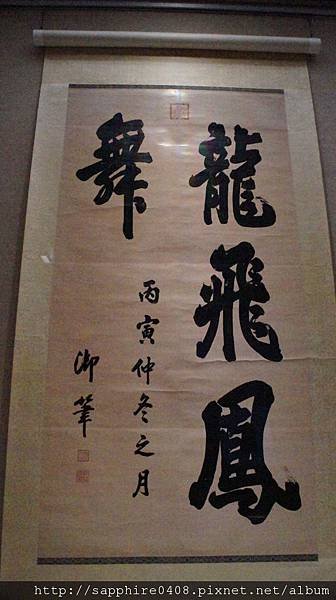 龍飛鳳
舞
丙寅仲冬之月
御筆
http://sapphire0408.pixnet.net/album